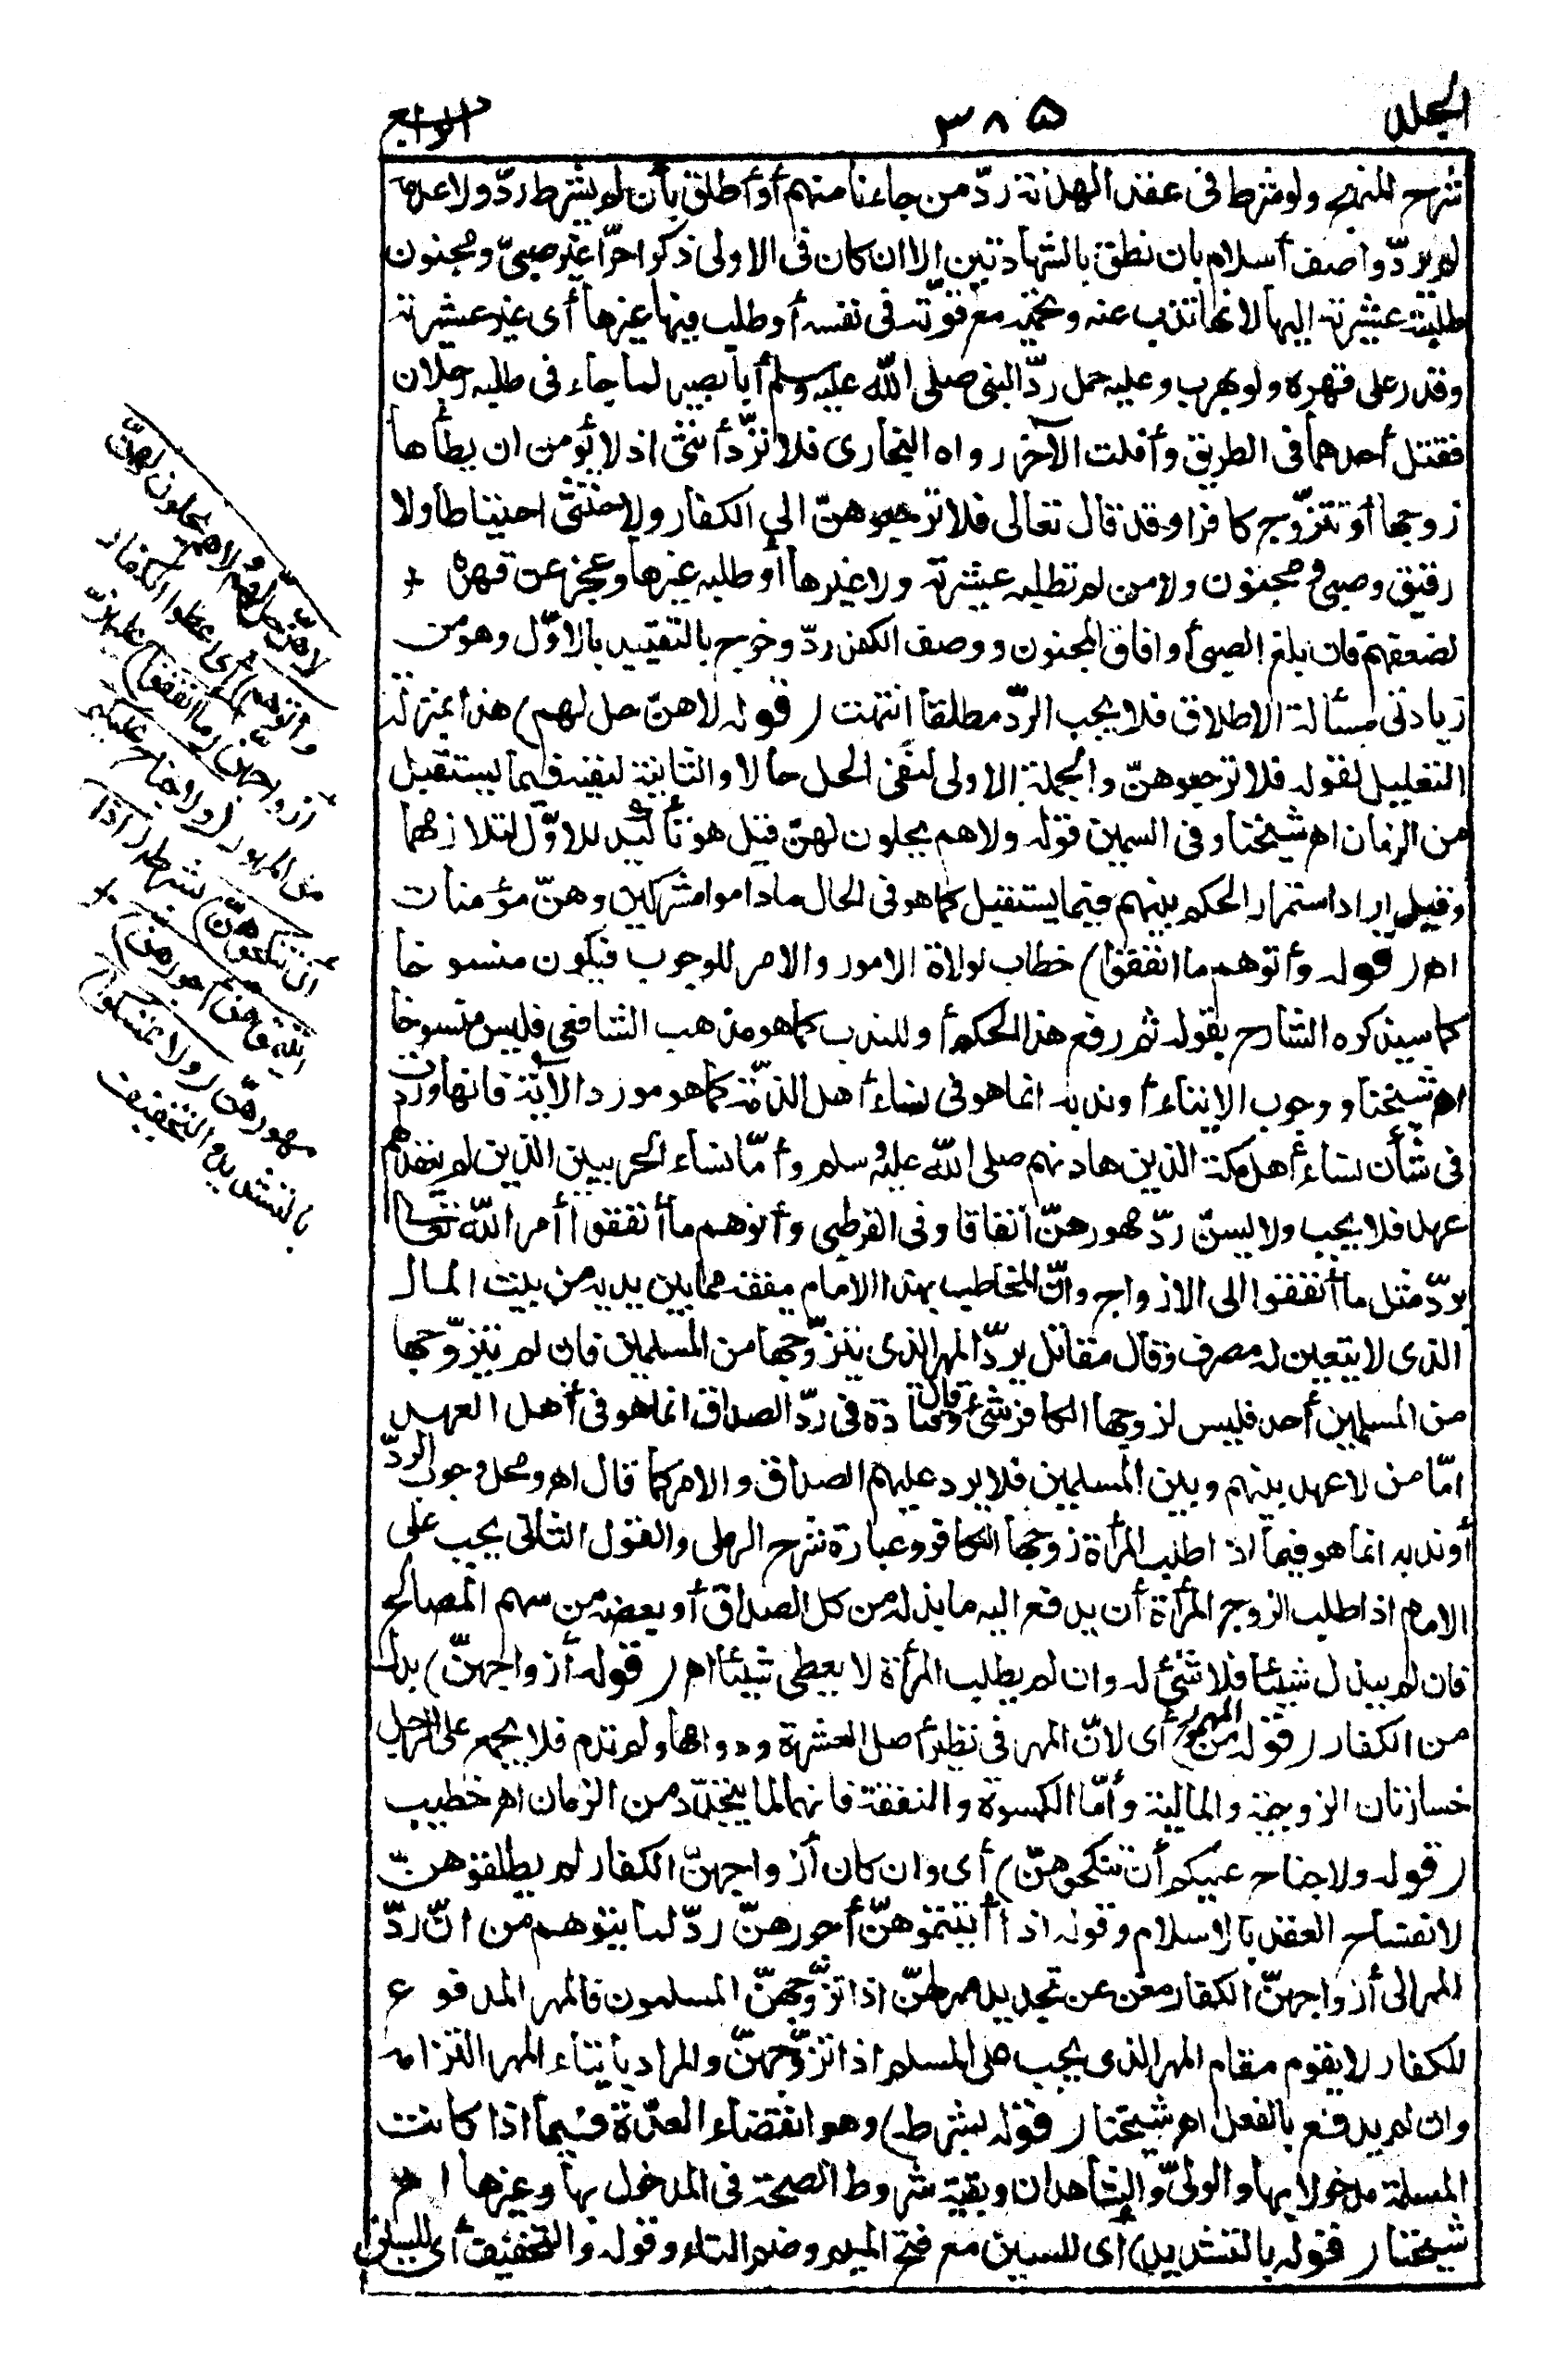 الجلد
٣٨٥
الرابع
شرح المنهج ولو شرط فى عقد الهدنة ردّ من جاءنا منهم أو أطلق بأن لم يشرط ردّ ولا عدمه
لم يردّ واصف أسلام بان نطق بالشهادتين الا ان كان فى الاولى ذكرا حرّا غير صبىّ ومجنون
طلبته عشيرته اليها لانها تذب عنه وتحميه مع قوّته فى نفسه أو طلبه فيها غيرها أى غير عشيرته
وقدر على قهره ولو بهرب وعليه حمل ردّ النبى صلى الله عليه وسلم أبا بصير لما جاء فى طلبه رجلان
فقتل أحدهما فى الطريق وأفلت الآخر رواه البخارى فلا تردّ أنثى اذ لا يؤمن ان يطأها
زوجها أو تتزوّج كافرا وقد قال تعالى فلا ترجعوهنّ الى الكفار ولا خنثى احتياطا ولا
رقيق وصبى ومجنون ولا من لم تطلبه عشيرته ولا غيرها أو طلبه غيرها وعجز عن قهره
لضعفهم فان بلغ الصبى أو افاق المجنون ووصف الكفر ردّ وخرج بالتقييد بالاوّل وهو من
زيادتى مسألة الاطلاق فلا يجب الردّ مطلقا انتهت (قوله لاهنّ حل لهم) هذا بمنزلة
التعليل لقوله فلا ترجعوهنّ والجملة الاولى لنفى الحل حالا والثانية لنفيه فيما يستقبل
من الزمان اهـ شيخنا وفى السمين قوله ولا هم يحلون لهنّ قيل هو تأكيد للاوّل لتلازمهما
وقيل اراد استمرار الحكم بينهم فيما يستقبل كما هو فى الحال ماداموا مشركين وهنّ مؤمنات
اهـ (قوله وأتوهم ما انفقوا) خطاب لولاة الامور والامر للوجوب فيكون منسوخا
كما سيذكره الشارح بقوله ثم رفع هذا الحكم أو للندب كما هو مذهب الشافعى فليس منسوخا
اهـ شيخنا ووجوب الايتاء أو ندبه انما هو فى نساء أهل الذمّة كما هو مورد الآية فانها وردت
فى شأن نساء أهل مكة الذين هادنهم صلى الله عليه وسلم وأمّا نساء الحربيين الذين لم يتقدّم لهم
عهد فلا يجب ولا يسنّ ردّ مهورهنّ اتفاقا وفى القرطبى وأتوهم ما أنفقوا أمر الله تعالى
بردّ مثل ما أنفقوا الى الازواج وانّ المخاطب بهذا الامام ينفذ مما بين يديه من بيت المال
الذى لا يتعين له مصرف وقال مقاتل يردّ المهر الذى يتزوّجها من المسلمين فان لم يتزوّجها
من المسلمين أحد فليس لزوجها الكافر شئ وقال قتادة فى ردّ الصداق انما هو فى أهل العهد
امّا من لا عهد بينهم وبين المسلمين فلا يرد عليهم الصداق والامر كما قال اهـ ومحل وجوب الردّ
أو ندبه انما هو فيما اذا طلب المرأة زوجها الكافر وعبارة شرح الرملى والقول الثانى يجب على
الامام اذا طلب الزوج المرأة أن يدفع اليه ما بذله من كل الصداق أو بعضه من سهم المصالح
فان لم يبذل شيئا فلا شئ له وان لم يطلب المرأة لا يعطى شيئا اهـ (قوله أزواجهنّ) بدل
من الكفار (قوله من المهور) أى لانّ المهر فى نظير أصل العشرة ودوامها ولم تدم فلا يجمع على الرجل
خسارتان الزوجية والمالية وأمّا الكسوة والنفقة فانهما لما يتجدّد من الزمان اهـ خطيب
(قوله ولا جناح عليكم أن تنكحوهنّ) أى وان كان أزواجهنّ الكفار لم يطلقوهنّ
لانفساخ العقد بالاسلام وقوله اذا أتيتموهنّ أجورهنّ ردّ لما يتوهم من انّ ردّ
المهر الى أزواجهنّ الكفار مغن عن تجديد مهر لهنّ اذا تزوّجهنّ المسلمون فالمهر المدفوع
للكفار لا يقوم مقام المهر الذى يجب على المسلم اذا تزوّجهنّ والمراد بأيتاء المهر التزامه
وان لم يدفع بالفعل اهـ شيخنا (قوله بشرطه) وهو انقضاء العدّة فيما اذا كانت
المسلمة مدخولا بها والولىّ والشاهدان وبقية شروط الصحة فى المدخول بها وغيرها اهـ
شيخنا (قوله بالتشديد) أى للسين مع فتح الميم وضم التاء وقوله والتخفيف أى للسين
لاهنّ حل لهم ولا هم يحلون لهنّ
وأتوهم) أى اعطوا الكفار
أزواجهنّ (ما أنفقوا) عليهنّ
من المهور (ولا جناح عليكم
أن تنكحوهنّ) بشرطه (اذا
أتيتموهنّ أجورهنّ)
مهورهنّ (ولا تمسكوا)
بالتشديد والتخفيف